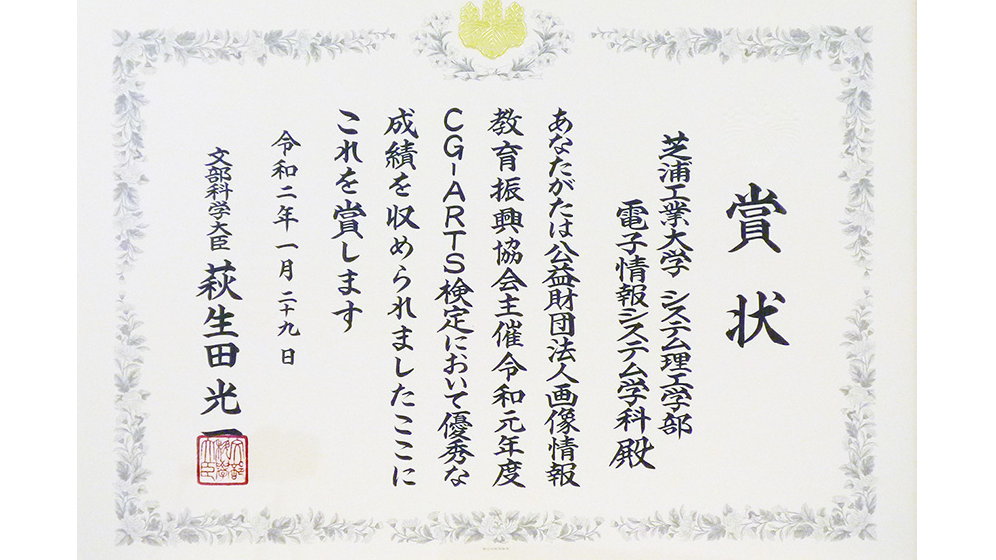 賞状
芝浦工業大学 システム理工学部
電子情報システム学科 殿
あなたがたは公益財団法人画像情報
教育振興協会主催令和元年度
CG-ARTS検定において優秀な
成績を収められましたここに
これを賞します
令和二年一月二十九日
文部科学大臣 萩生田光一
文部科学大臣